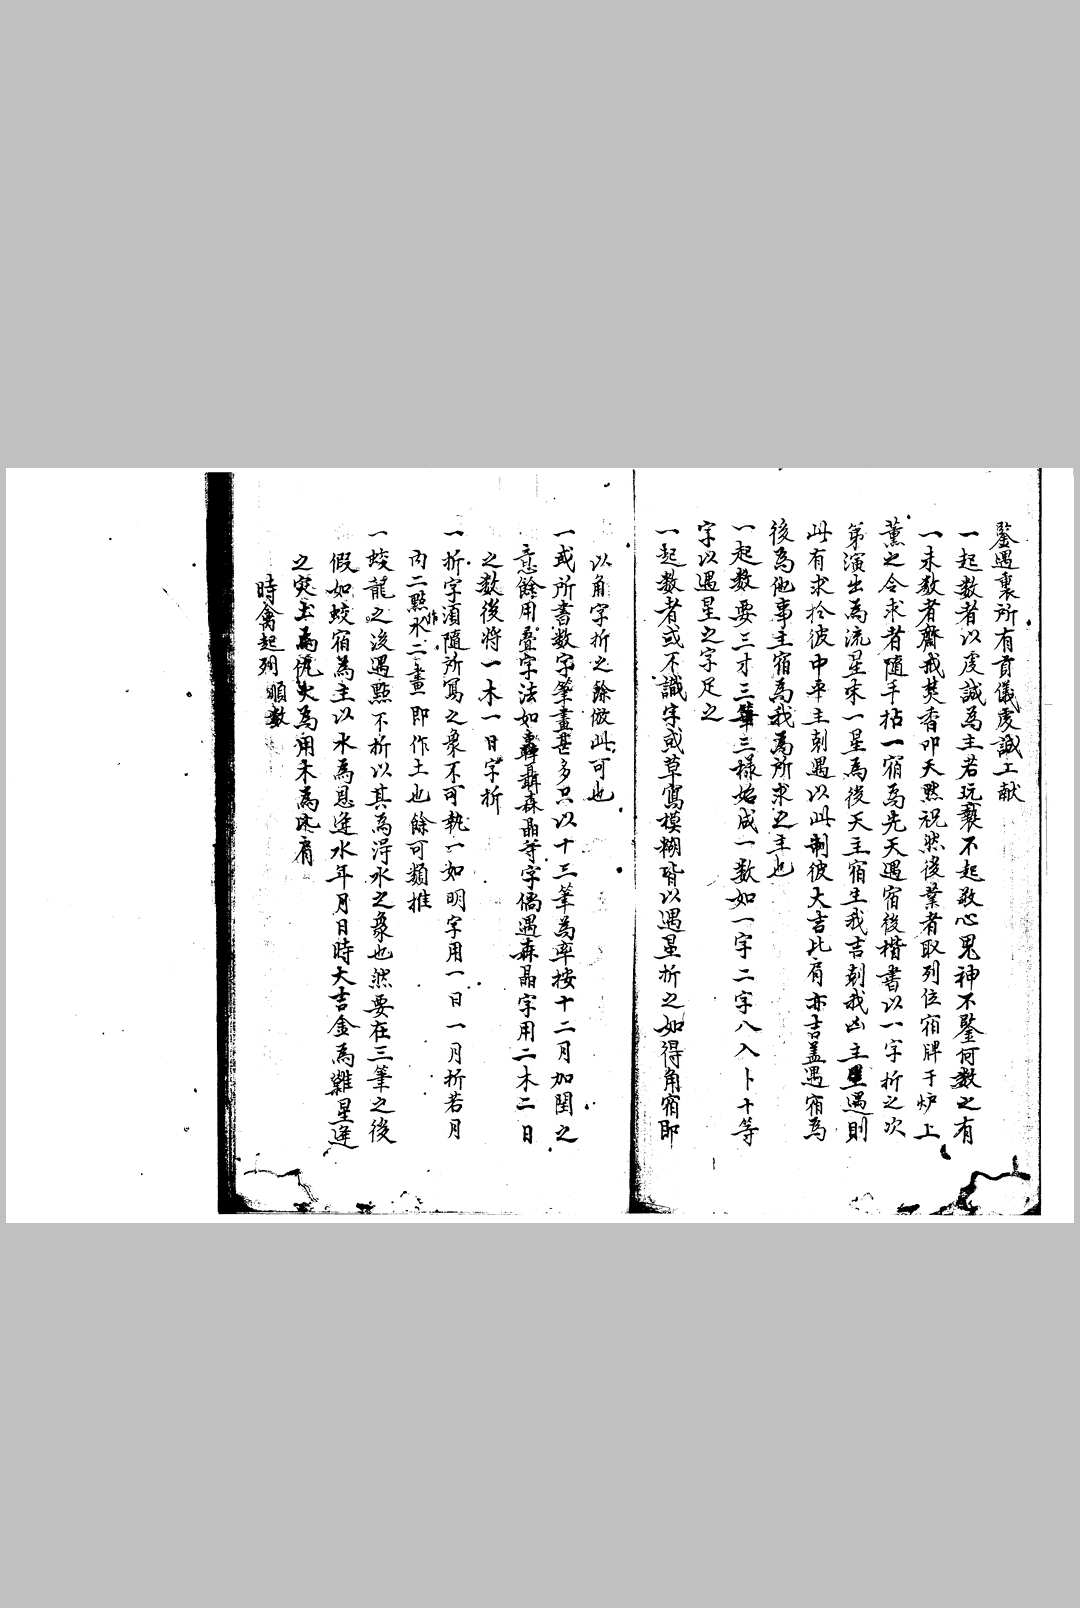 鑒遇裏所有首儀虔誠上献
一起数者以虔誠為主若玩褻不起敬心鬼神不鑒何数之有
一未数者齋戒焚香叩天黙祝然後業者取列位宿牌于炉上
薰之令求者隨手拈一宿為先天遇宿後楷書以一字折之次
第演出為流星末一星為後天主宿生我吉剋我凶主星遇則
此有求扵彼中平主剋遇以此制彼大吉比肩亦吉盖遇宿為
後為他事主宿為我為所求之主也
一起数要三才三筆三様始成一数如一字二字八入卜十等
字以遇星之字足之
一起数者或不識字或草寫模糊皆以遇星折之如得角宿即
以角字折之餘倣此可也
一或所書数字筆畫甚多只以十三筆為率按十二月加閏之
意餘用疊字法如轟聶森晶等字儒遇森晶字用二木二日
之数後将一木一日字折
一折字須隨所寫之象不可執一如明字用一日一月折若月
内二點作水二畫即作土也餘可類推
一蛟龍之後遇點不折以其為淂水之象也然要在三筆之後
假如蛟宿為主以水為恩逢水年月日時大吉金為難星逢
之灾土為仇火為用木為比肩
時禽起列 順数